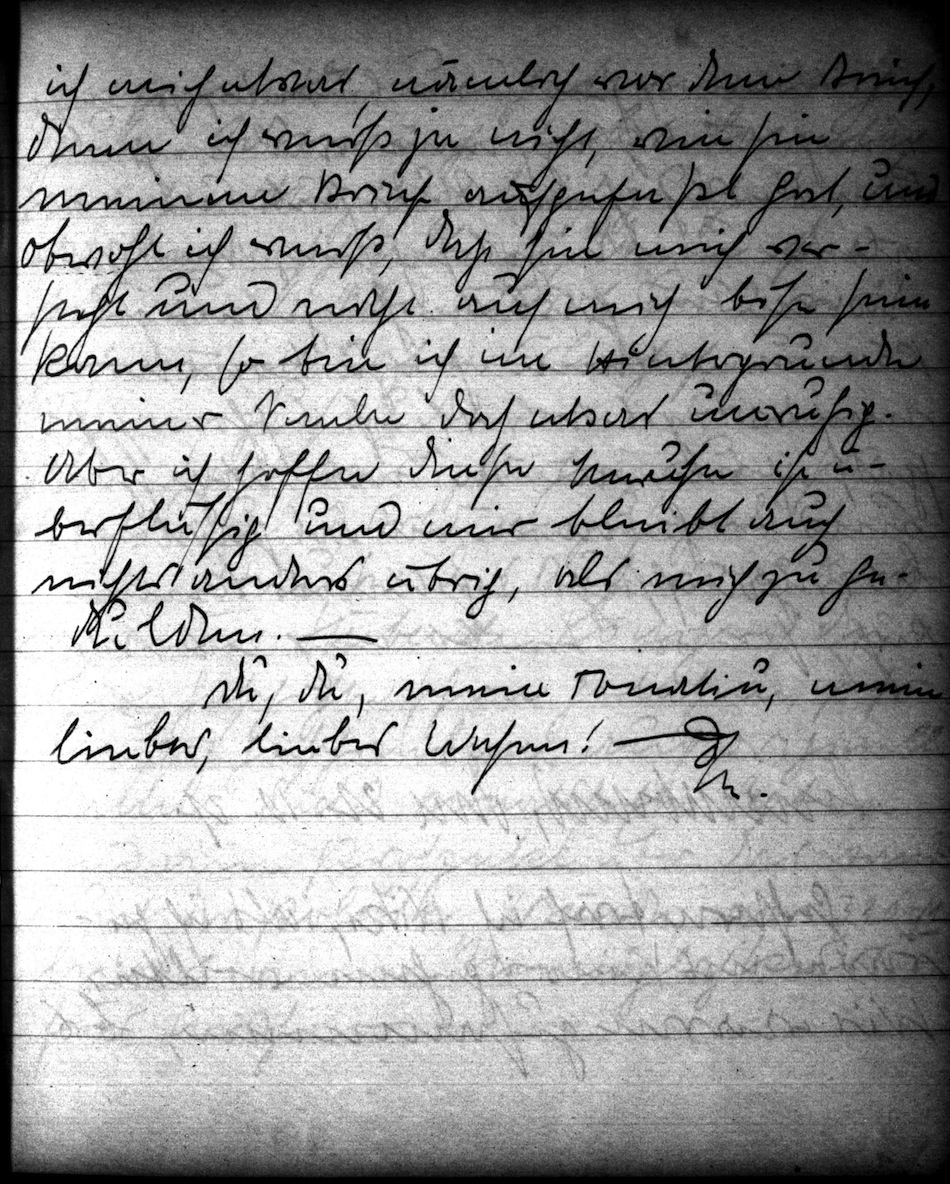 ich mich etwas, nämlich vor dem Brief,
denn ich weiß ja nicht, wie sie
meinen Brief aufgefaßt hat, und
obwohl ich weiß, daß sie mich ver-
steht und nicht auf mich böse sein
kann, so bin ich im Hintergrunde
meiner Seele doch etwas unruhig.
Aber ich hoffe diese Unruhe ist ü-
berflüssig und mir bleibt auch
nichts anders übrig, als mich zu ge-
dulden. —
Du, Du, meine, meine
liebes, liebes Wesen! —